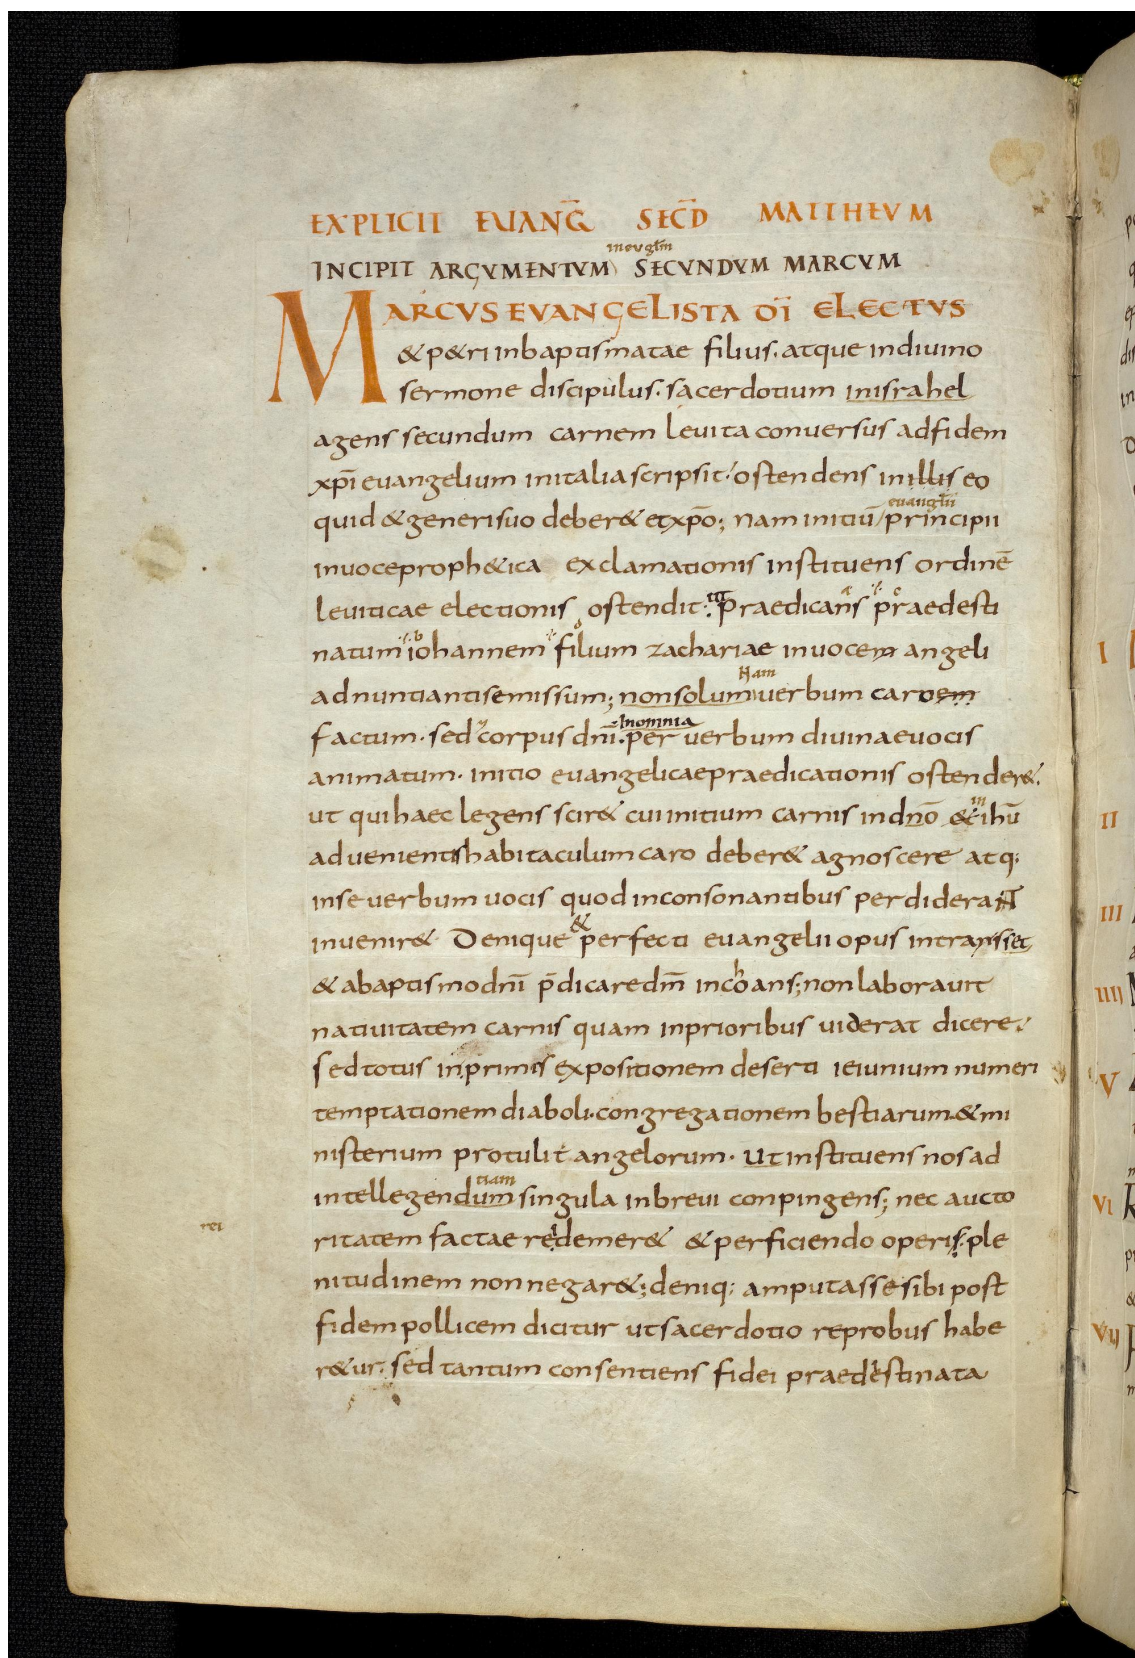 EXPLICIT EUANḠ SEC̄D MATTHEVM
in eugl̄m
INCIPIT ARGVMENTVM SECVNDVM MARCVM
MARCVS EVANGELISTA DĪ ELECTVS
& p&ri inbaptismatae filius. atque indiuino
sermone discipulus. sacerdotium inisrahel
agens secundum carnem leuita conuersus adfidem
xp̄i euangelium initalia scripsit. ostendens inillis eo
euanglii
quid & generi suo deber& et xp̄o; nam initiū principii
inuoce proph&ica exclamationis instituens ordinē
leuiticae electionis ostendit. praedicans praedesti
natum iohannem filium zachariae inuocem angeli
Nam
adnuntiantis emissum; nonsolum uerbum carnem
Inomnia
factum. sed corpus dn̄i. per uerbum diuinae uocis
animatum. initio euangelicae praedicationis ostender&.
ut qui haec legens scir& cui initium carnis indn̄o & ihū
aduenientis habitaculum caro deber& agnoscere atq;
inse uerbum uocis quod inconsonantibus perdiderat
&
inuenir& Denique perfecti euangelii opus intransset
& abaptismo dn̄i p̄dicare dm̄ incohans; non laborauit
natiuitatem carnis quam inprioribus uiderat dicere.
sed totus inprimis expositionem deserti ieiunium numeri
temptationem diaboli. congregationem bestiarum. & mi
nisterium protulit angelorum. ut instituens nos ad
tiam
intellegendum singula inbreui conpingens; nec aucto
rei
ritatem factae redemer& & perficiendo operis. ple
nitudinem non negar&; deniq; amputasse sibi post
fidem pollicem dicitur ut sacerdotio reprobus habe
r&ur. sed tantum consentiens fidei praedestinata
I
II
III
IIII
V
VI
VII